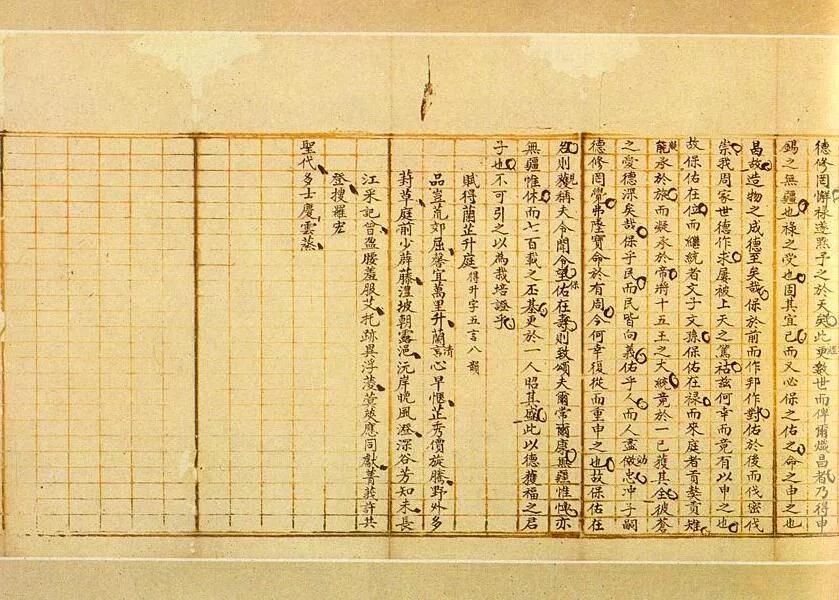 德修罔懈祿遂熙予之於天矣此更數世而俾爾熾昌者乃得申
錫之無疆也祿之受也固其宜已而又必保之佑之命之申之也
昌故造物之成德至矣哉保於前而作邦作對佑於後而伐密伐
崇我周家世德作求屢被上天之篤祜茲何幸而竟有以申之也
故保佑在位而繼統者文子文孫保佑在祿而來庭者貢獒貢雉
承於旅而凝承於常將十五王之大統竟於一已獲其全彼蒼
之愛德深矣哉保乎民而民皆向義佑乎人而人盡倣忠冲子嗣
德修罔覺弗墜寶命於有周今何幸復從而重申之也故保佑在
名則獲稱夫令聞令望佑在壽則致頌夫爾常爾康無疆惟恤亦
無疆惟休而七百載之丕基更於一人昭其盛此以德獲福之君
子也不可引之以為栽培證乎
賦得蘭芷升庭 得升字五言八韻
品豈荒郊屈馨宜萬里升蘭言心早愜芷秀價旋騰野外多
葑草庭前少薜藤澧坡朝露浥沅岸晚風澄深谷芳知未長
江采記曾盈腰羞服艾托跡異浮菱萱莢應同獻菁莪許共
登搜羅宏
聖代多士慶雲蒸